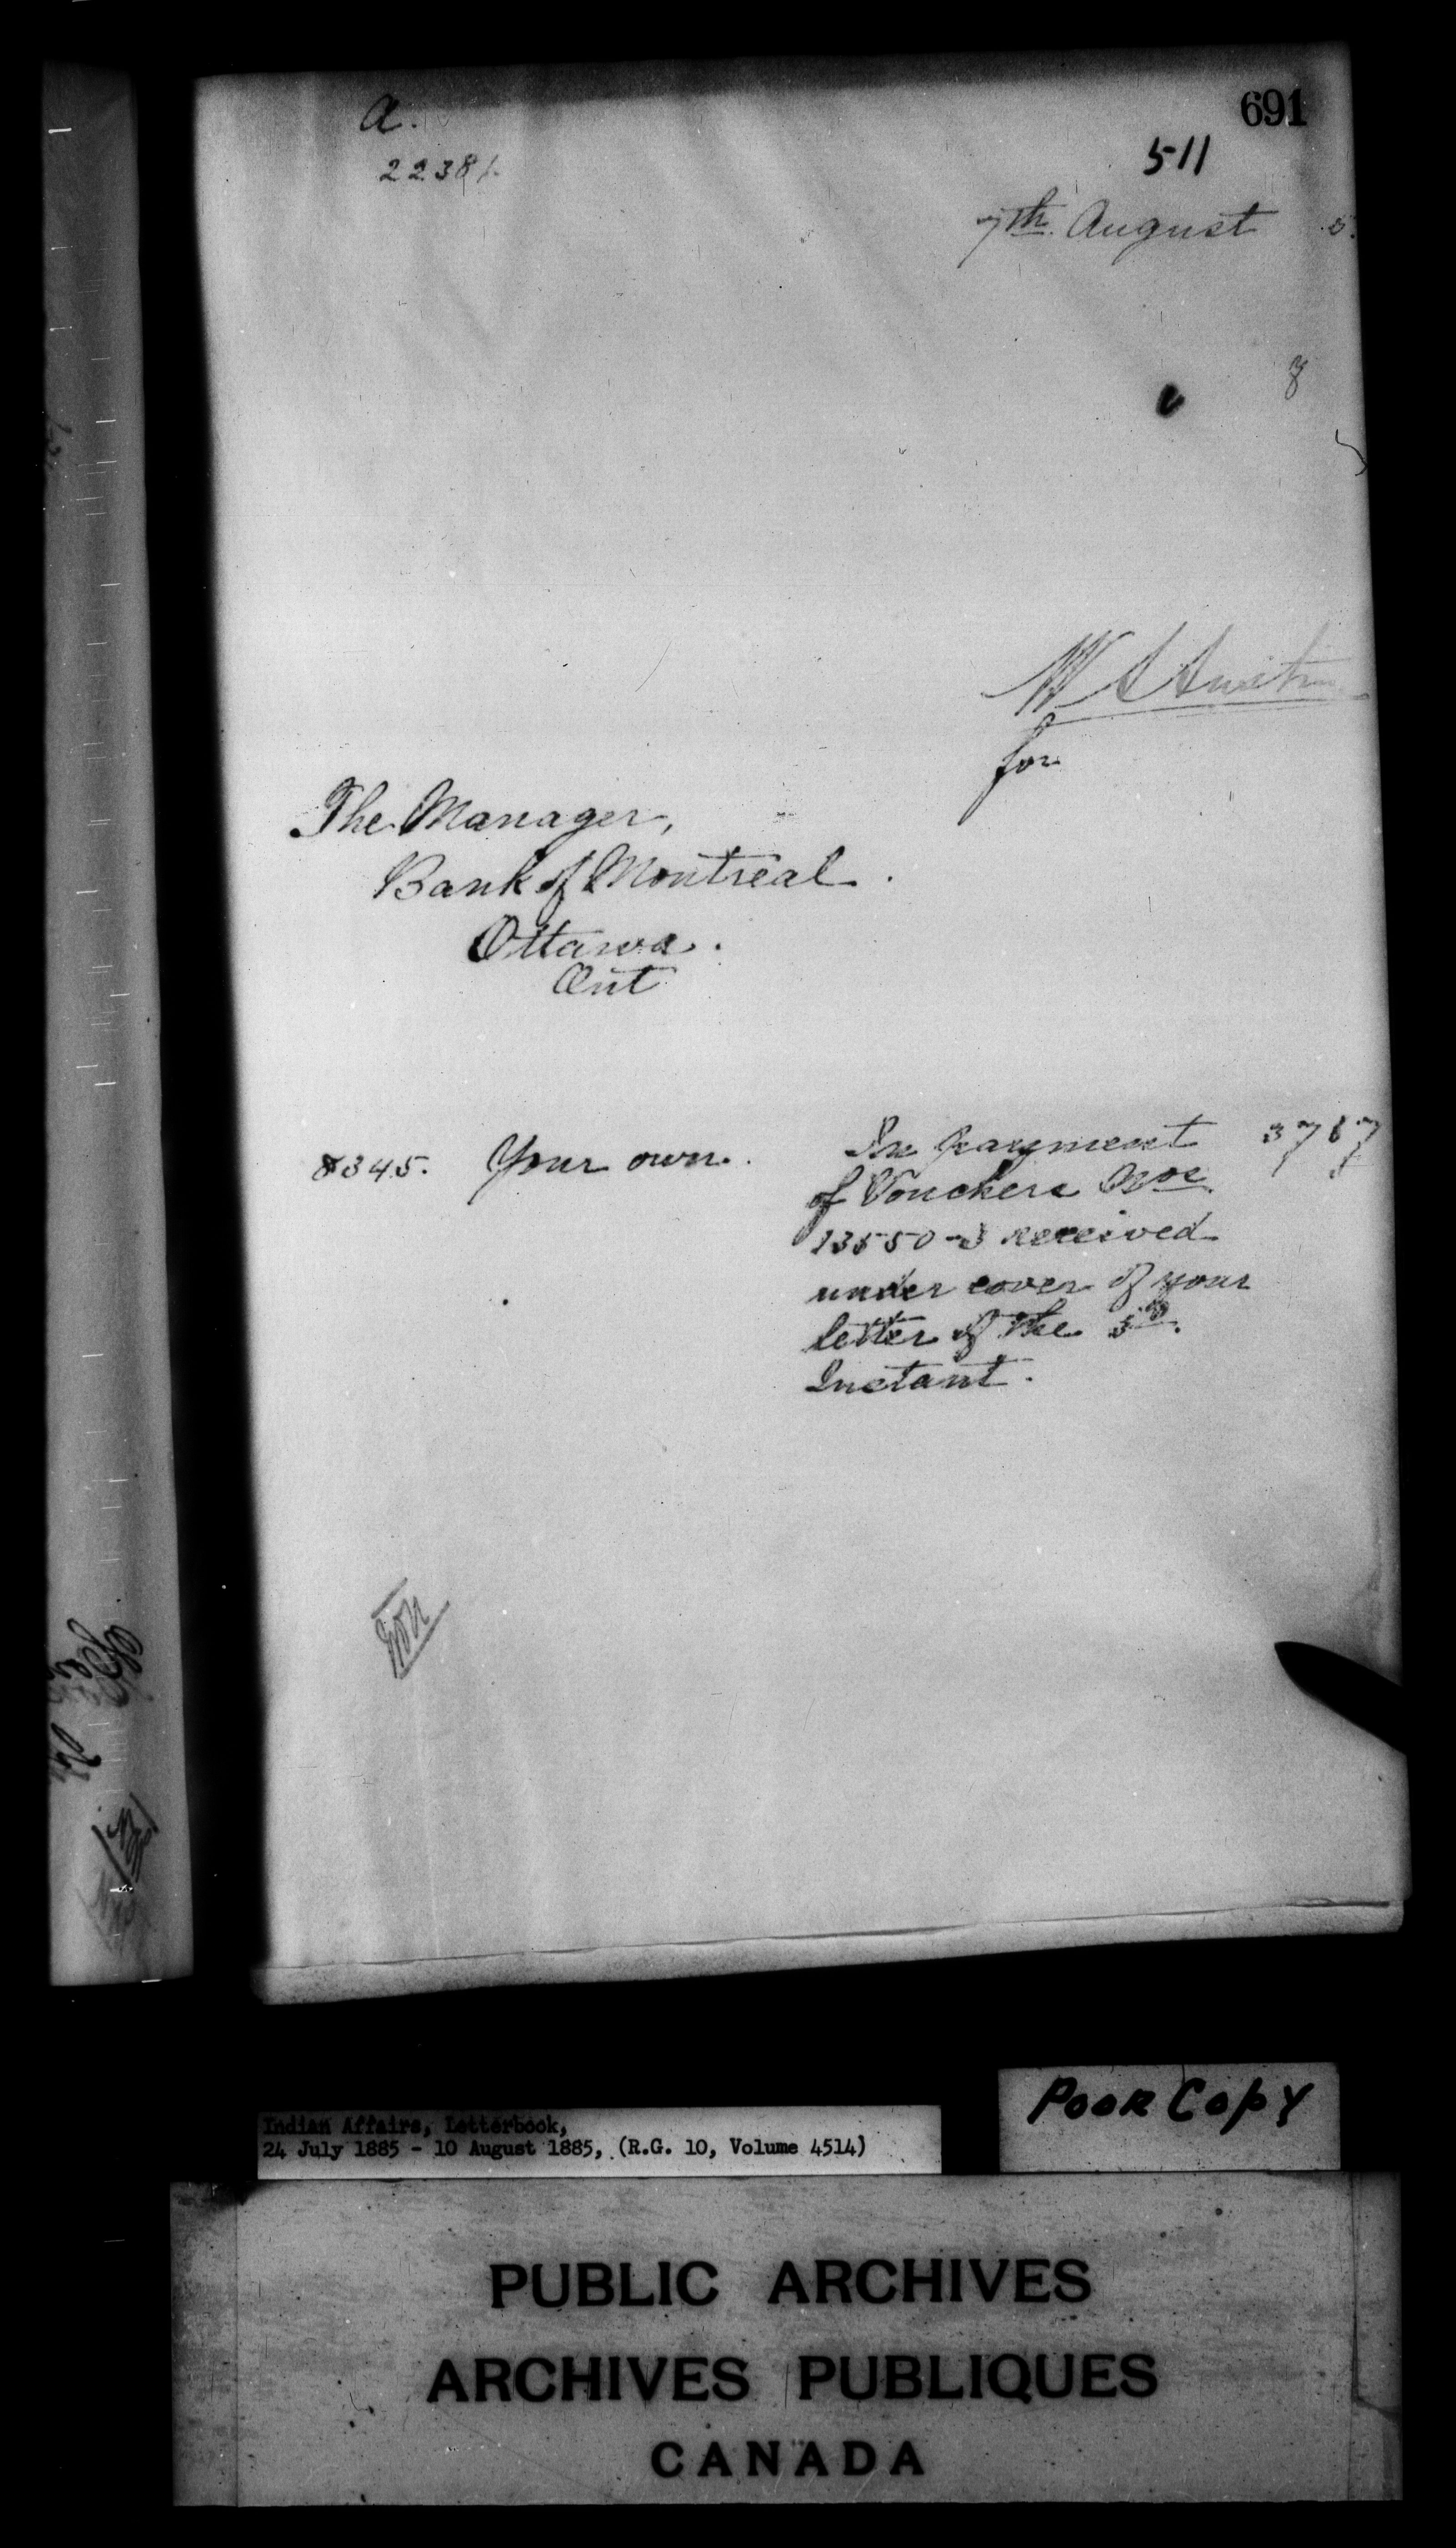 a.
691
22381.
511
7th August 5.
8
W A Austin
for
The Manager,
Bank of Montreal.
Ottawa.
Ont
8345. Your own. In payment
of Vouchers Nos
13550-3 received
under cover of your
letter of the 5th.
Instant.
Indian Affairs, Letterbook,
24 July 1885 - 10 August 1885, (R.G. 10, Volume 4514)
POOR COPY
PUBLIC ARCHIVES
ARCHIVES PUBLIQUES
CANADA